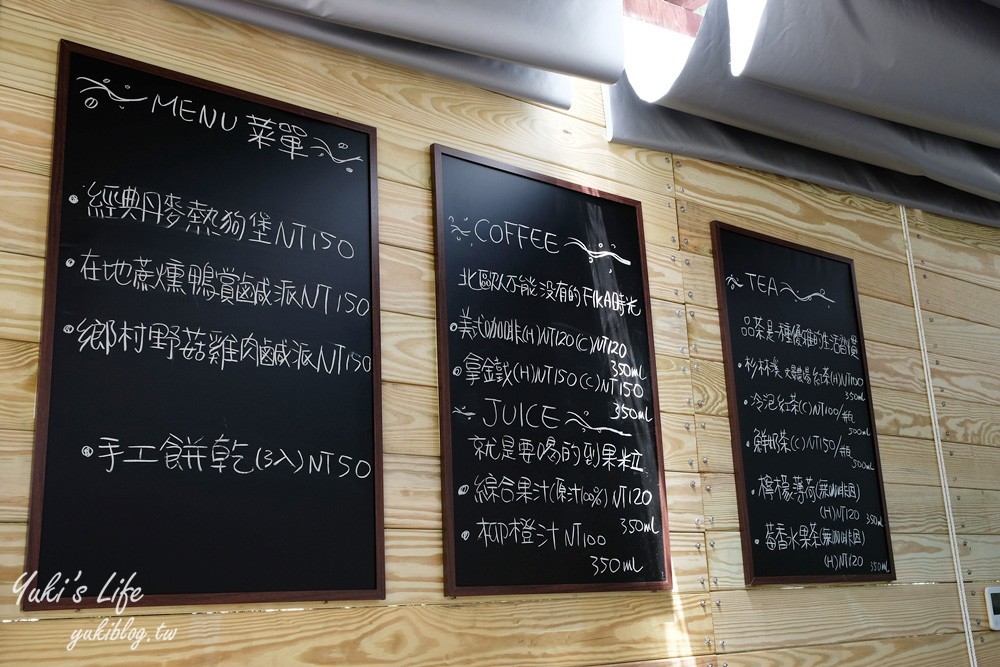 MENU 菜單
•經典丹麥熱狗堡NT150
•在地蔗燻鴨賞鹹派NT150
•鄉村野菇雞肉鹹派NT150
•手工餅乾(3入)NT50
COFFEE
北歐人不能沒有的FIKA時光
•美式咖啡(H)NT120(C)NT120
350mL
•拿鐵(H)NT150(C)NT150
350mL
JUICE
就是要喝的到果粒
•綜合果汁(原汁100%) NT120
350mL
•柳橙汁 NT100
350mL
TEA
品茶是一種優雅的生活習慣
•杉林溪 紅茶(H)NT100
350mL
•冷泡紅茶(C)NT100/瓶
500mL
•鮮奶茶(C)NT150/瓶
500mL
•檸檬薄荷(無咖啡因)
(H)NT120 350mL
•藍香水果茶(無咖啡因)
(H)NT120 350mL
Yuki's Life
yukiblog.tw